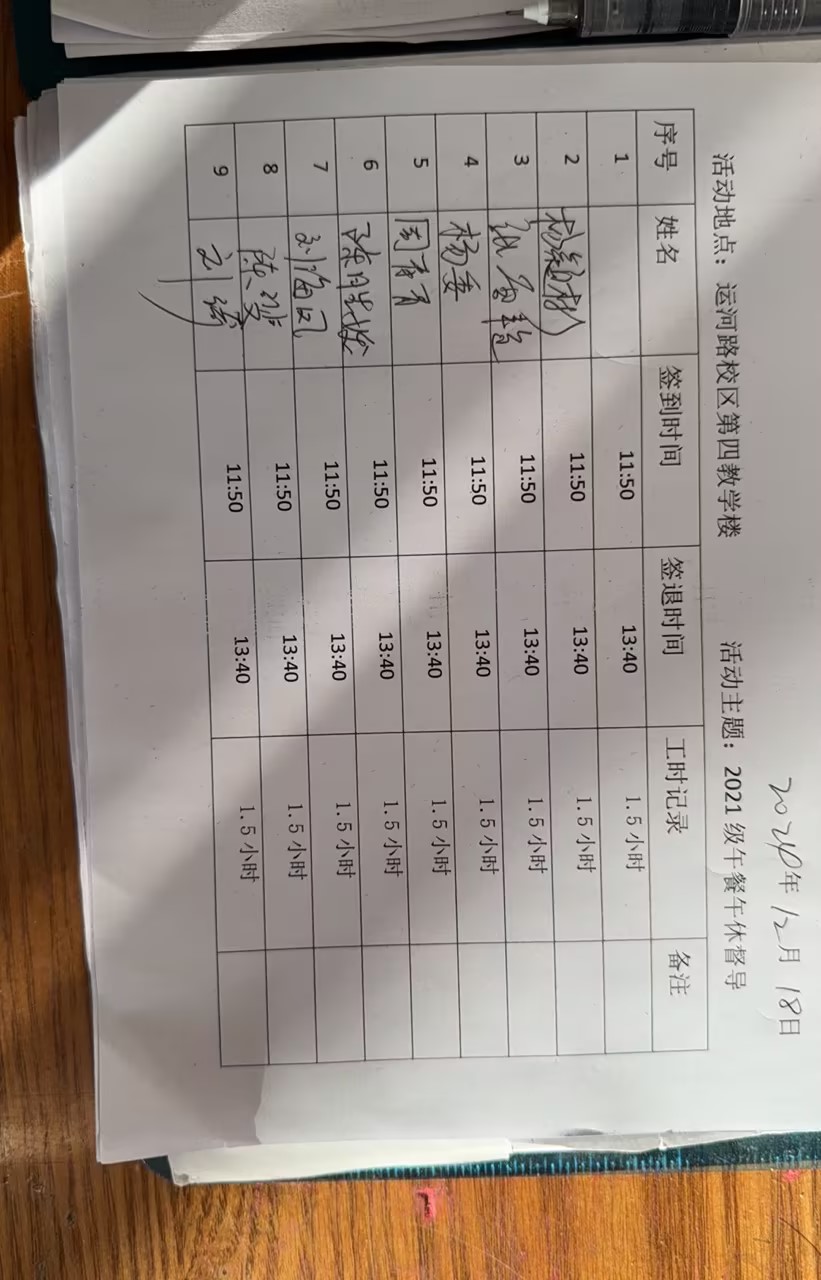 2024年12月18日
活动地点：运河路校区第四教学楼 活动主题：2021级午餐午休督导
序号 姓名 签到时间 签退时间 工时记录 备注
1 11:50 13:40 1.5小时
2 11:50 13:40 1.5小时
3 11:50 13:40 1.5小时
4 杨 11:50 13:40 1.5小时
5 周 11:50 13:40 1.5小时
6 11:50 13:40 1.5小时
7 刘海凤 11:50 13:40 1.5小时
8 陈 11:50 13:40 1.5小时
9 刘 11:50 13:40 1.5小时